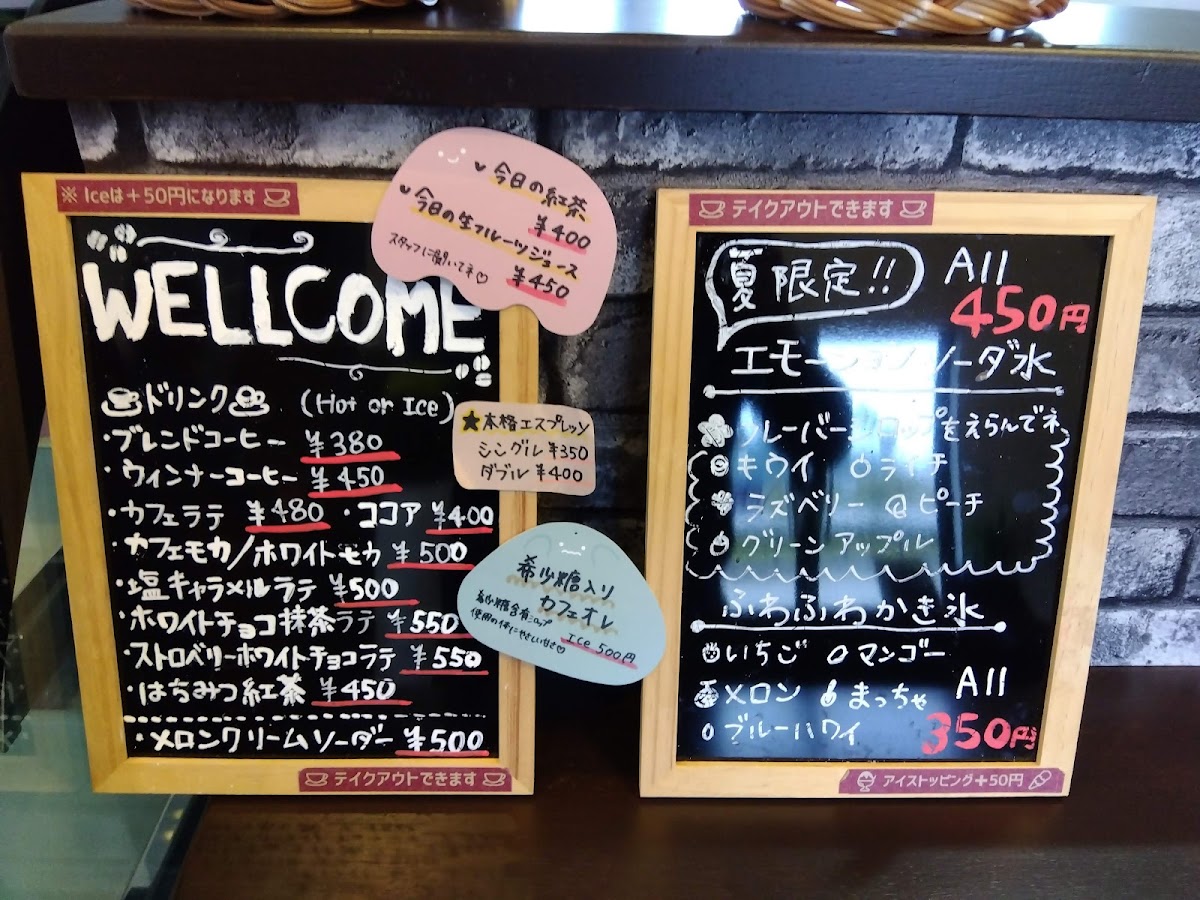 ※ Iceは＋50円になります
WELLCOME
ドリンク (Hot or Ice)
・ブレンドコーヒー ¥380
・ウィンナーコーヒー ¥450
・カフェラテ ¥480 ・ココア ¥400
・カフェモカ/ホワイトモカ ¥500
・塩キャラメルラテ ¥500
・ホワイトチョコ抹茶ラテ ¥550
・ストロベリーホワイトチョコラテ ¥550
・はちみつ紅茶 ¥450
・メロンクリームソーダー ¥500
テイクアウトできます
♥今日の紅茶
¥400
♥今日の生フルーツジュース
スタッフに聞いてネ♡ ¥450
★本格エスプレッソ
シングル ¥350
ダブル ¥400
希少糖入り
カフェオレ
希少糖含有シロップ
使用の体にやさしい甘さ♡
Ice 500円
テイクアウトできます
夏限定!! All
450円
エモーション ソーダ水
フレーバーシロップをえらんでネ
キウイ ライチ
ラズベリー ピーチ
グリーンアップル
ふわふわかき氷
いちご マンゴー
メロン まっちゃ All
ブルーハワイ 350円
アイストッピング＋50円